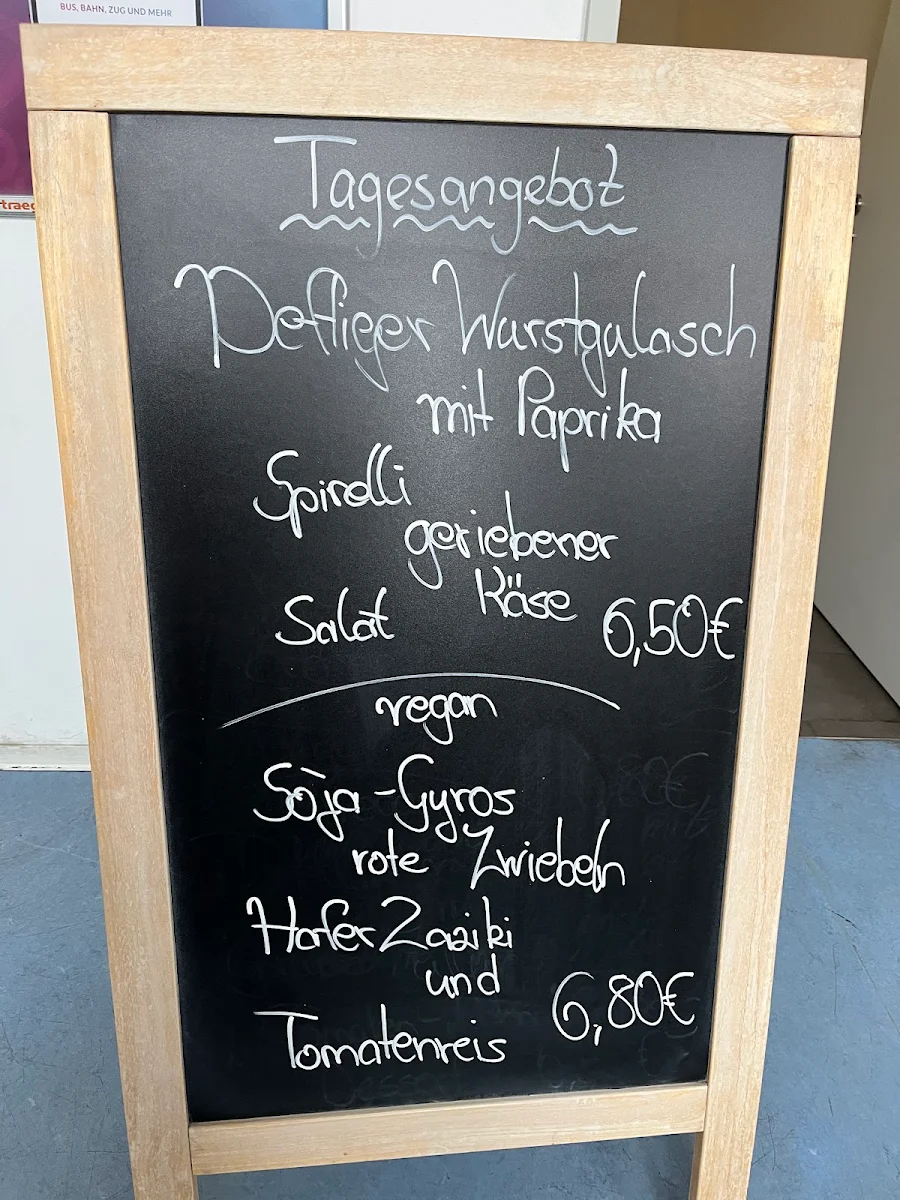 BUS, BAHN, ZUG UND MEHR
traeg
Tagesangebot
Deftiger Wurstgulasch
mit Paprika
Spirelli
geriebener
Käse
Salat
6,50€
vegan
Soja-Gyros
rote Zwiebeln
Hafer Zaziki
und
6,80€
Tomatenreis